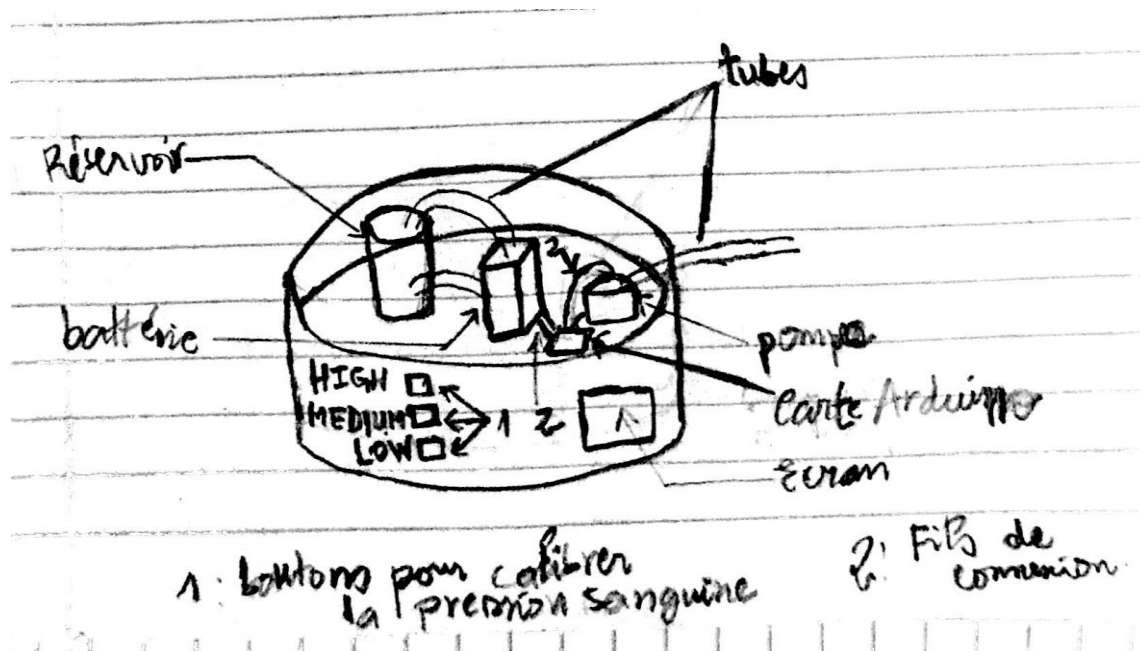 tubes
Réservoir
battérie
pompe
Carte Arduino
HIGH
MEDIUM 1 2
LOW
2
Ecran
1: boutons pour calibrer
la pression sanguine
2: Fils de
connexion